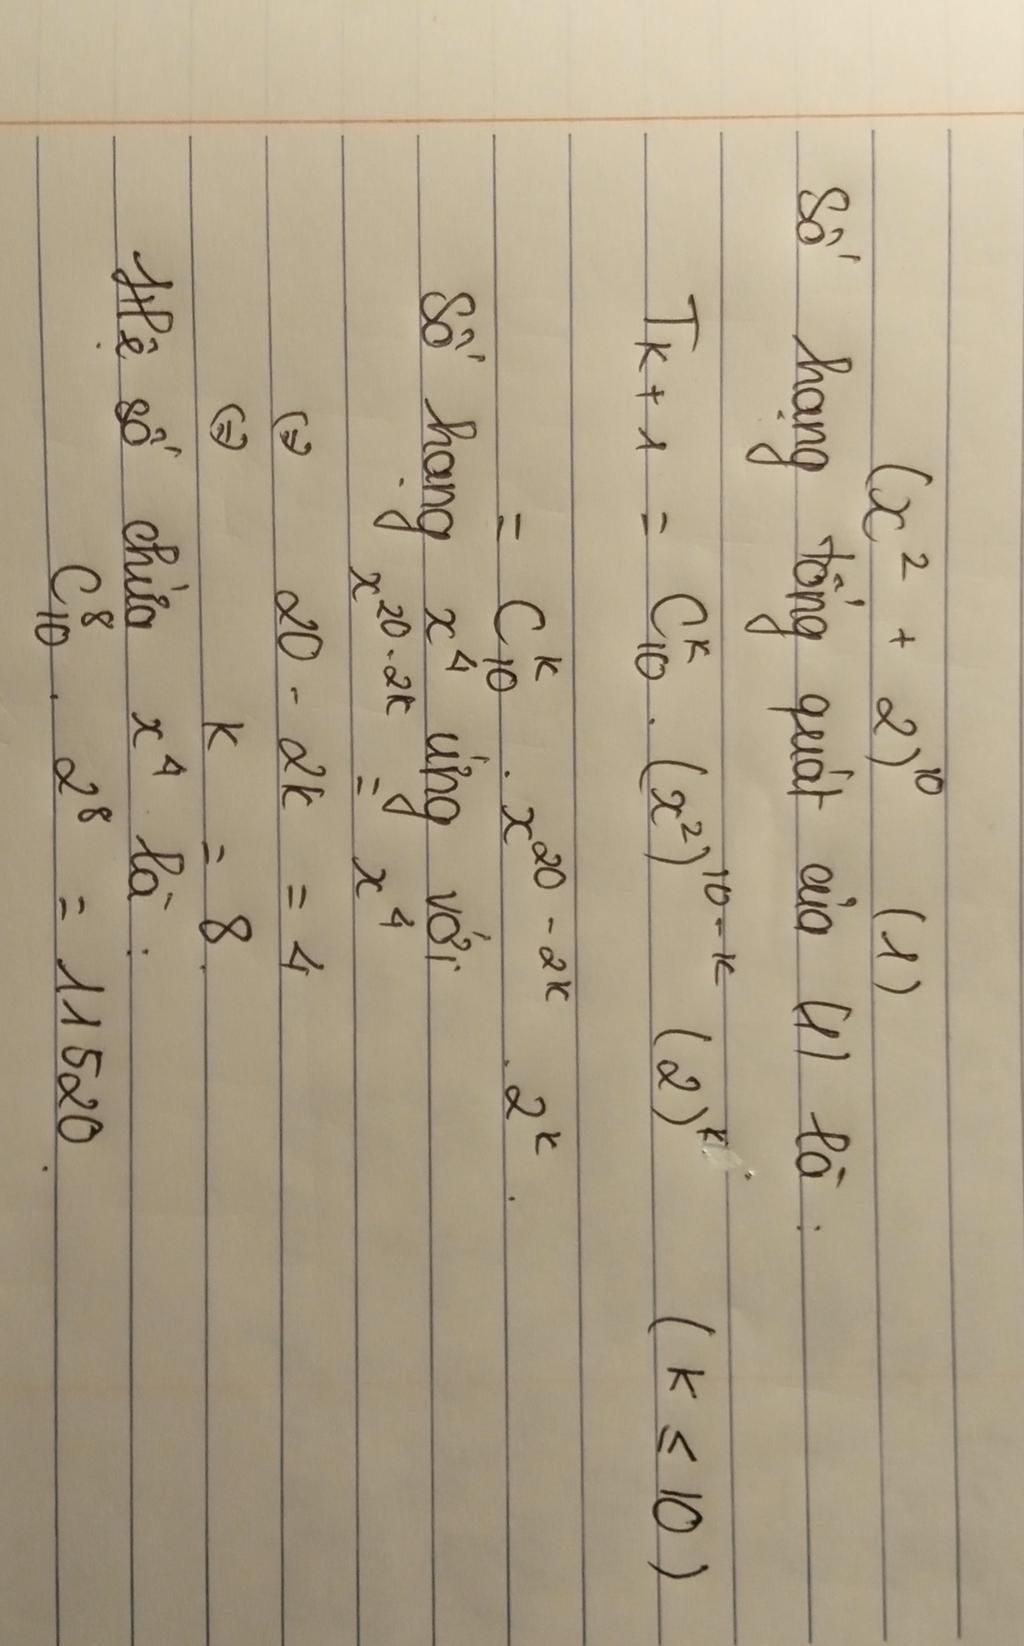 (x² + 2)¹⁰ (1)
Số hạng tổng quát của (1) là :
Tk+1 = C₁₀ᵏ . (x²)¹⁰⁻ᵏ (2)ᵏ (k ≤ 10)
= C₁₀ᵏ . x²⁰⁻²ᵏ . 2ᵏ .
Số hạng x⁴ ứng với
x²⁰⁻²ᵏ = x⁴
⇔ 20 - 2k = 4
⇔ k = 8.
Hệ số chứa x⁴ là :
C₁₀⁸ . 2⁸ = 11520.